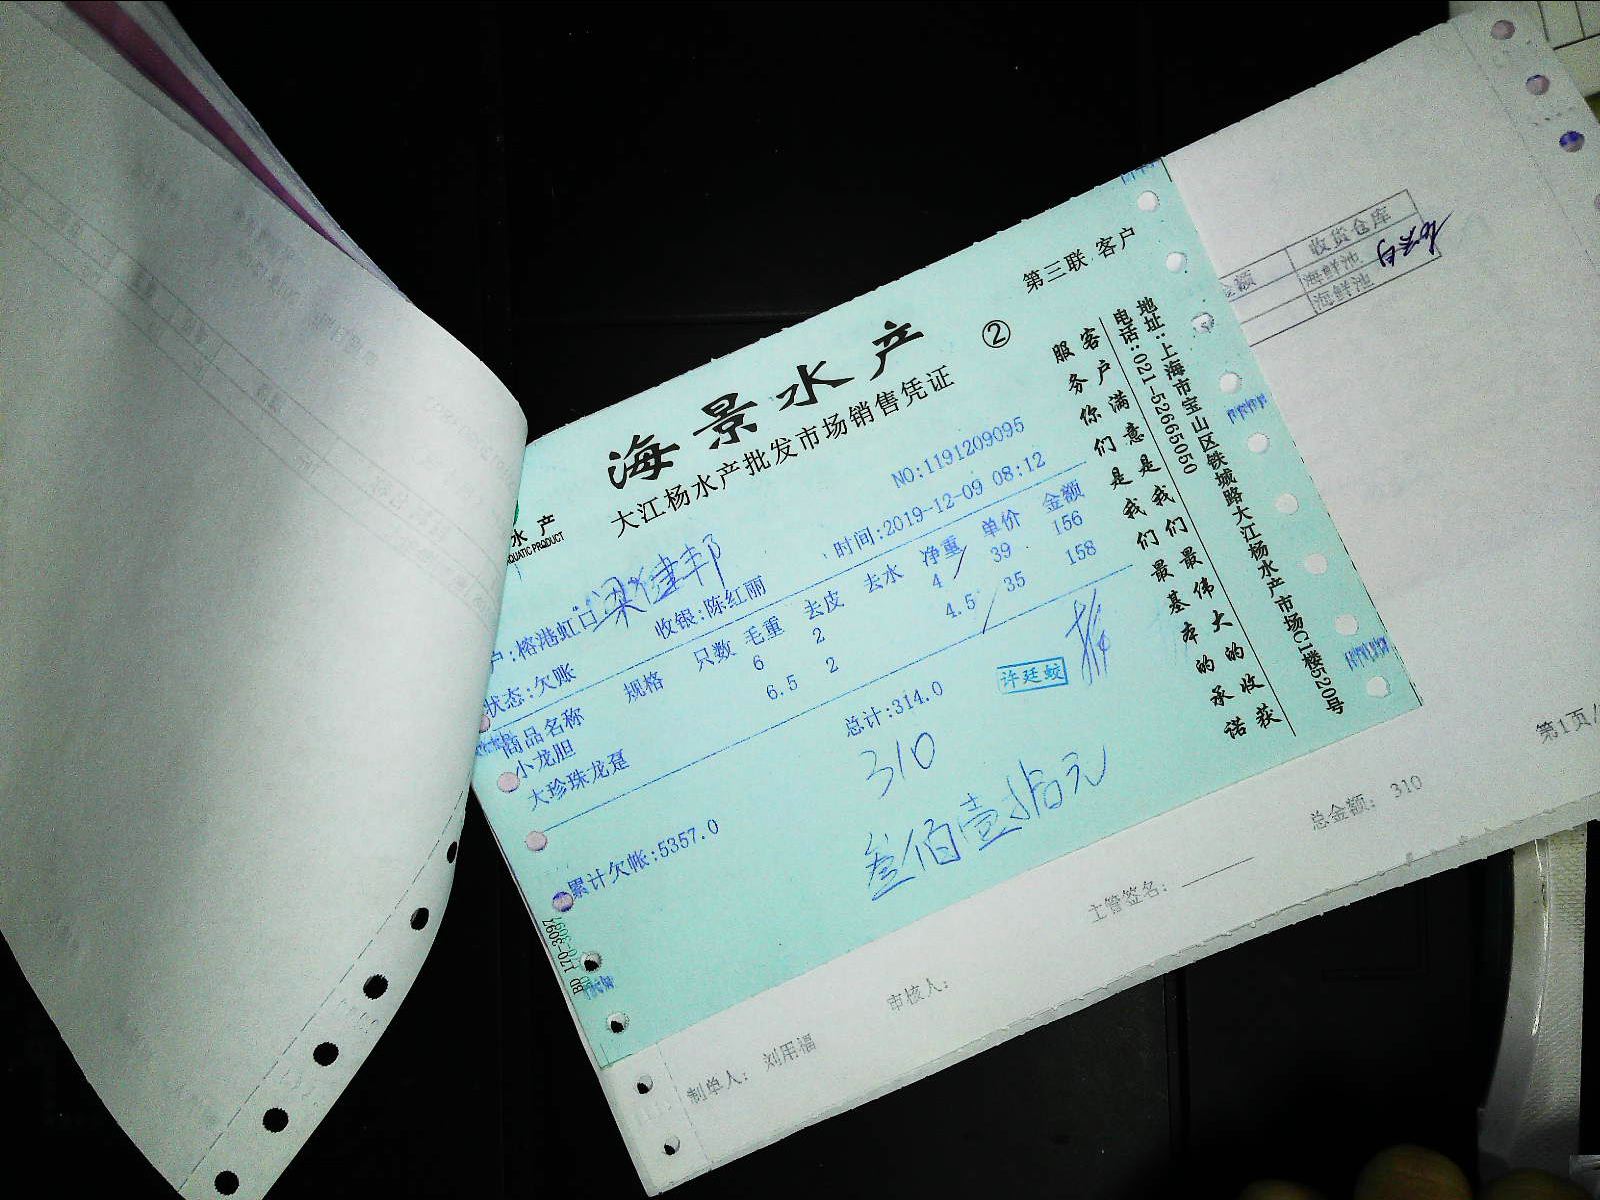 第三联 客户
海景水产 ②
大江杨水产批发市场销售凭证
水产
QUATIC PRODUCT
NO:1191209095
户:榕港虹口 梁健邦
时间:2019-12-09 08:12
状态:欠账 收银:陈红丽
商品名称 规格 只数 毛重 去皮 去水 净重 单价 金额
小龙胆 6 2 4 39 156
大珍珠龙趸 6.5 2 4.5 35 158
总计:314.0
许廷蛟
310
叁佰壹拾元
累计欠帐:5357.0
客户满意是我们最伟大的收获
服务你们是我们最基本的承诺
地址:上海市宝山区铁城路大江杨水产市场C1楼520号
电话:021-52665050
BD 170-3097
金额 收货仓库
海鲜池
海鲜池
第1页/
总金额: 310
主管签名:
审核人:
制单人: 刘用福